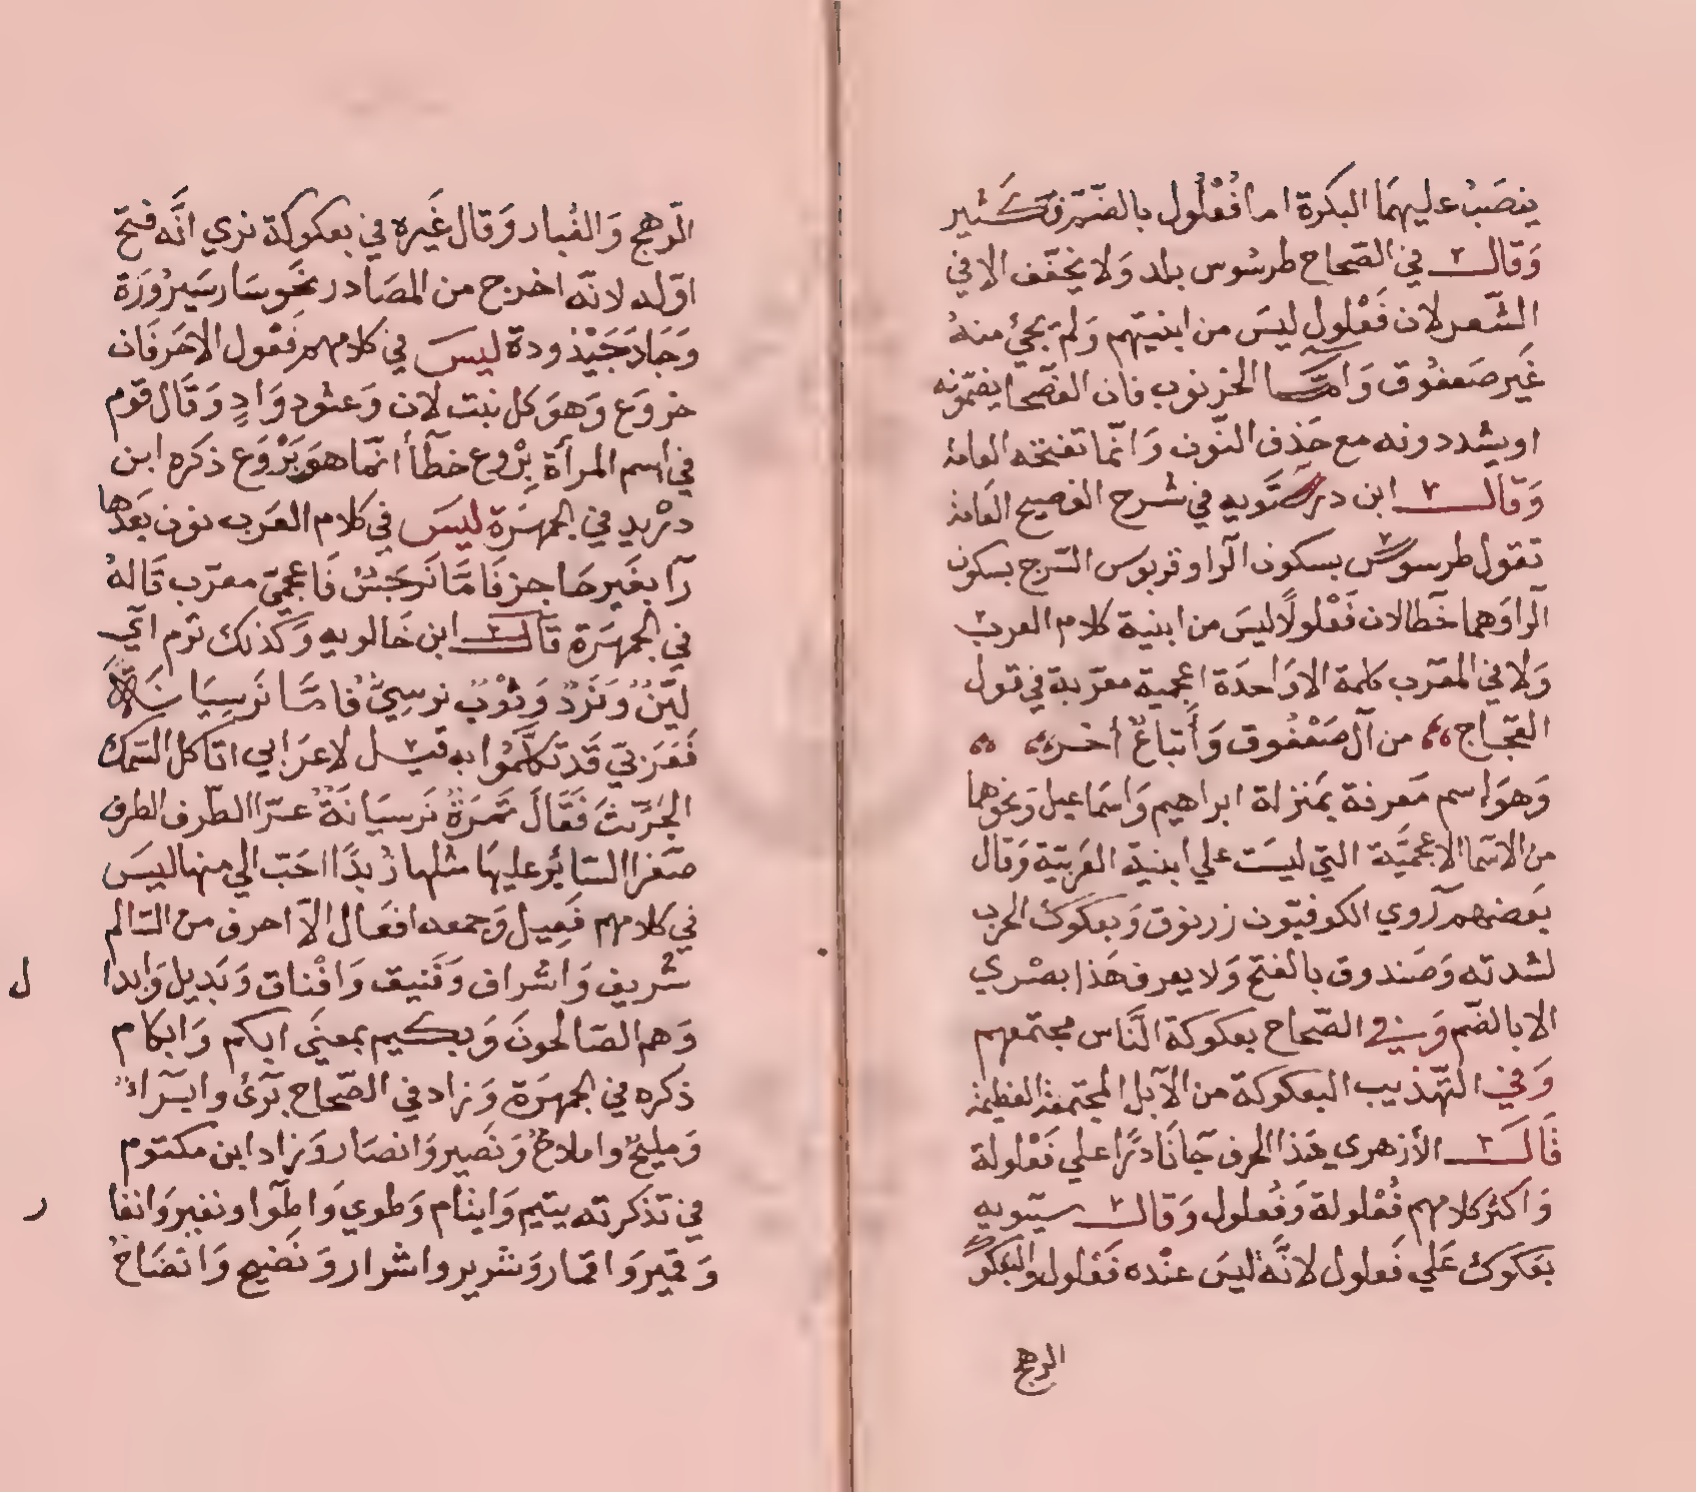 ينصَبُ عليهمَا البكرة اما فُعْلُول بالضّم فكَثير
وَقال في الصّحاح طرسُوس بلد وَلا يخفّف الا في
الشّعر لان فَعْلُول ليسَ من ابنيتهم وَلم يجئ منهُ
غَير صَعفوُق وَامّا الخرنوب فان الفصَحا يضمّونه
او يشددونه مع حَذف النّون وَانّما تفتحه العامة
وَقال ابن درستَويه في شرح الفصيح العَامة
تقول طرسوس بسكون الرّا وقربوس السّرج بسكون
الرّا وَهما خَطا لان فَعْلولًا ليسَ من ابنية كلام العرب
وَلا في المعَرّب كلمة الا وَاحدَة اعجمية معَرّبة في قول
العجّاج من آل صَعْفُوق وَأتباعٌ أخر
وَهوَ اسم مَعرفة بمَنزلة ابراهيم وَاسمَاعيل وَنحوهما
من الاسَما الاعجميَّة التي ليسَت علي ابنية العَربيّة وَقال
بعَضهم رَوي الكوفيّون زرنوق وَبعكَوك الحرب
لشدته وَصَندوق بالفتح وَلا يعرف هَذا بصْري
الا بالضّم وَفي الصّحاح بعكوكة النّاس مجتمعهم
وَفي التّهذيب البعكوكة من الآبل المجتمعة العظيمة
قَالَ الأزهري هَذا الحرف جَا نَادرًا علي فَعْلولة
وَاكثر كلامهم فُعْلولة وَفُعلول وَقال سيبَويه
بعَكَوك عَلي فَعلول لانَّه ليسَ عنْده فَعْلول وَالبعَكوك
الرهج
الرّهج وَالغُبار وَقال غَيره في بعكوكة نري انَّه فتَح
اوّله لانّه اخرج من المصَادر نحَو سَار سَيرُورَة
وَحَاد حَيْذودة ليسَ في كلامهم فِعْول الا حَرفَان
خروَع وَهوَ كل نبت لان وَعتود وَادٍ وَقَال قوم
في اسم المرأة بِرْوع خطَأ انّما هوَ بَرْوَع ذكره ابن
دريد في الجمهَرَة ليسَ في كلام العَرب نون بَعدها
رَآ بغَير حَاجز فَامَّا نَرجَسٌ فَاعجميّ معرّب قَالهُ
في الجمهَرَة قَالَ ابن خَالويه وَكَذلك نَرم ايّ
ليّنٌ وَنَرْدٌ وَثوْبٌ نرسِيٌّ فَامَّا نَرسِيَا
فَعَربي قَد تكلَّمُوا به قيل لاعرَابي اتاكل السَّمك
الجِرِّيثَ فَقَالَ تَمرَةٌ نَرسيَانَةٌ غرّا الطّرف الطرف
صَفرا السَّائر عليهَا مثلها زُبدًا احَبّ الي منها ليسَ
في كلامهم فَعِيل وَجمعه افعَال الاّ احرف من السّالم
شريف وَاشراف وَفَنيق وَافْناق وَبَديل وَابدا
ل
وَهم الصّالحونَ وَبكيم بمعنَي ابكم وَابكام
ذكره في الجمهَرَة وَزاد في الصّحاح برَئ وابرَاء
وَمليحٌ واملاحٌ وَنَصير وَانصَار وَزاد ابن مكتوم
في تذكرته يتيم وَايتام وَطوي وَاطوَا ونفير وَانفا
ر
وَقمير وَاقمار وَشرير واشرار وَنَضيح وَانضَاح